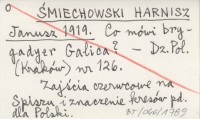 ŚMIECHOWSKI HARNISZ
Janusz 1919. Co mówi bry-
gadyer Galica? – Dz. Pol.
(Kraków) nr 126.
Zajścia czerwcowe na
Spiszu i znaczenie kresów pd.
dla Polski.
BT/066/1789